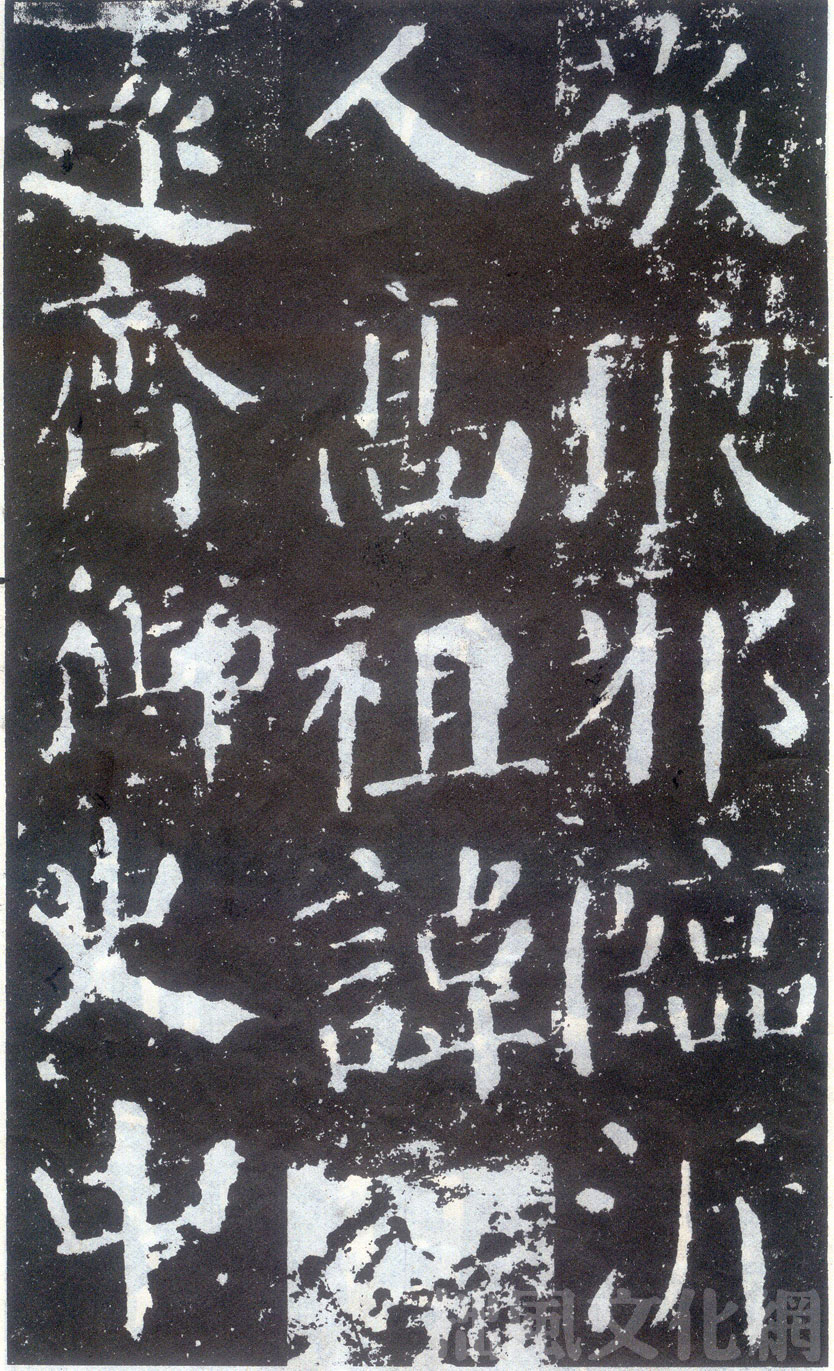 敬琅邪臨沂
人高祖諱
遠齊御史中
風文化網